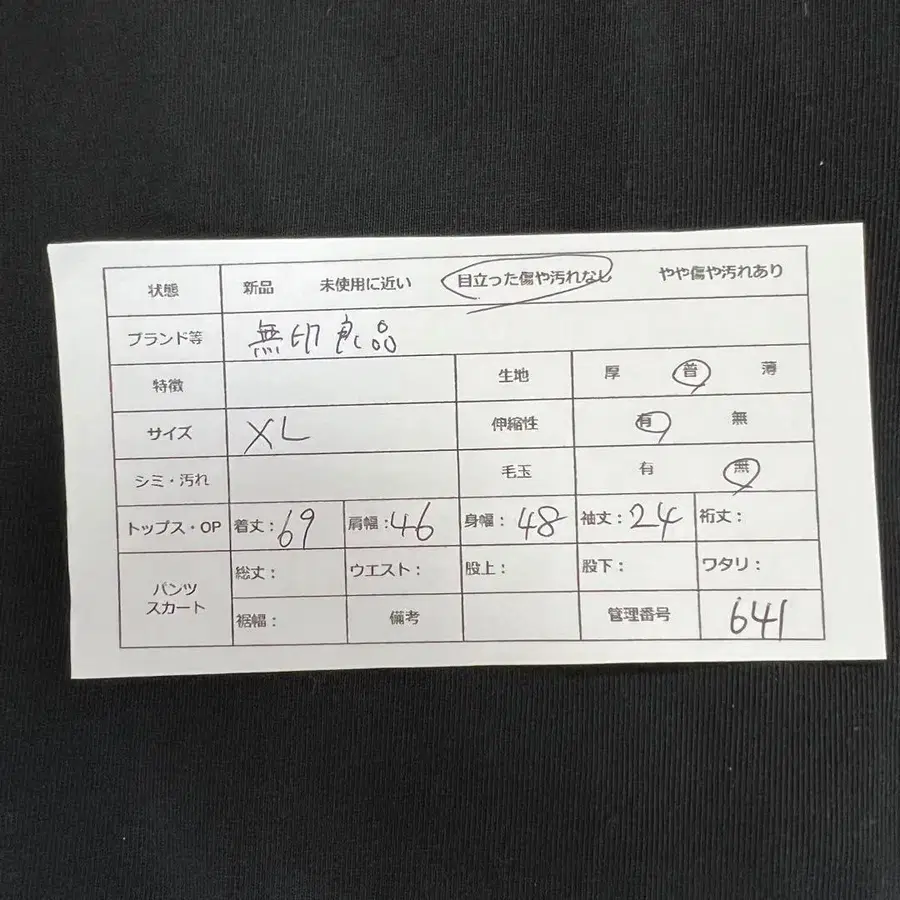 状態 新品 未使用に近い 目立った傷や汚れなし やや傷や汚れあり
ブランド等 無印良品
特徴 生地 厚 普 薄
サイズ XL 伸縮性 有 無
シミ・汚れ 毛玉 有 無
トップス・OP 着丈：69 肩幅：46 身幅：48 袖丈：24 裄丈：
パンツ スカート 総丈： ウエスト： 股上： 股下： ワタリ：
裾幅： 備考 管理番号 641